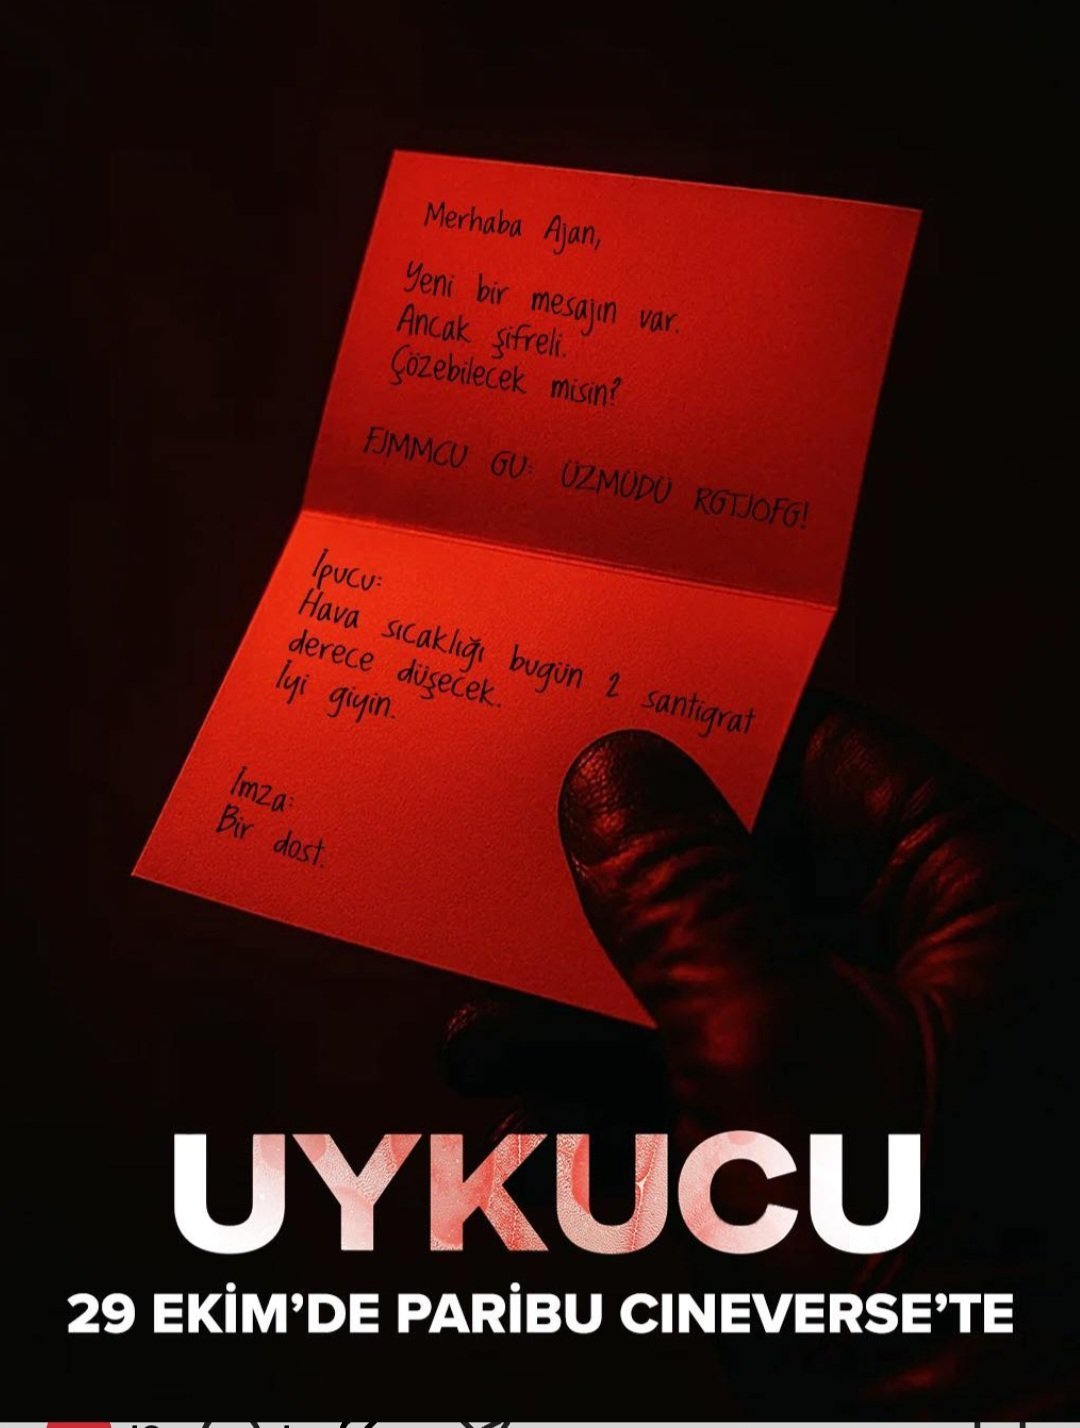 Merhaba Ajan,
Yeni bir mesajın var.
Ancak şifreli.
Çözebilecek misin?
FJMMCU GU: ÜZMÜDÜ RGTJOFG!
İpucu:
Hava sıcaklığı bugün 2 santigrat
derece düşecek.
İyi giyin.
İmza:
Bir dost.
UYKUCU
29 EKİM'DE PARİBU CINEVERSE'TE